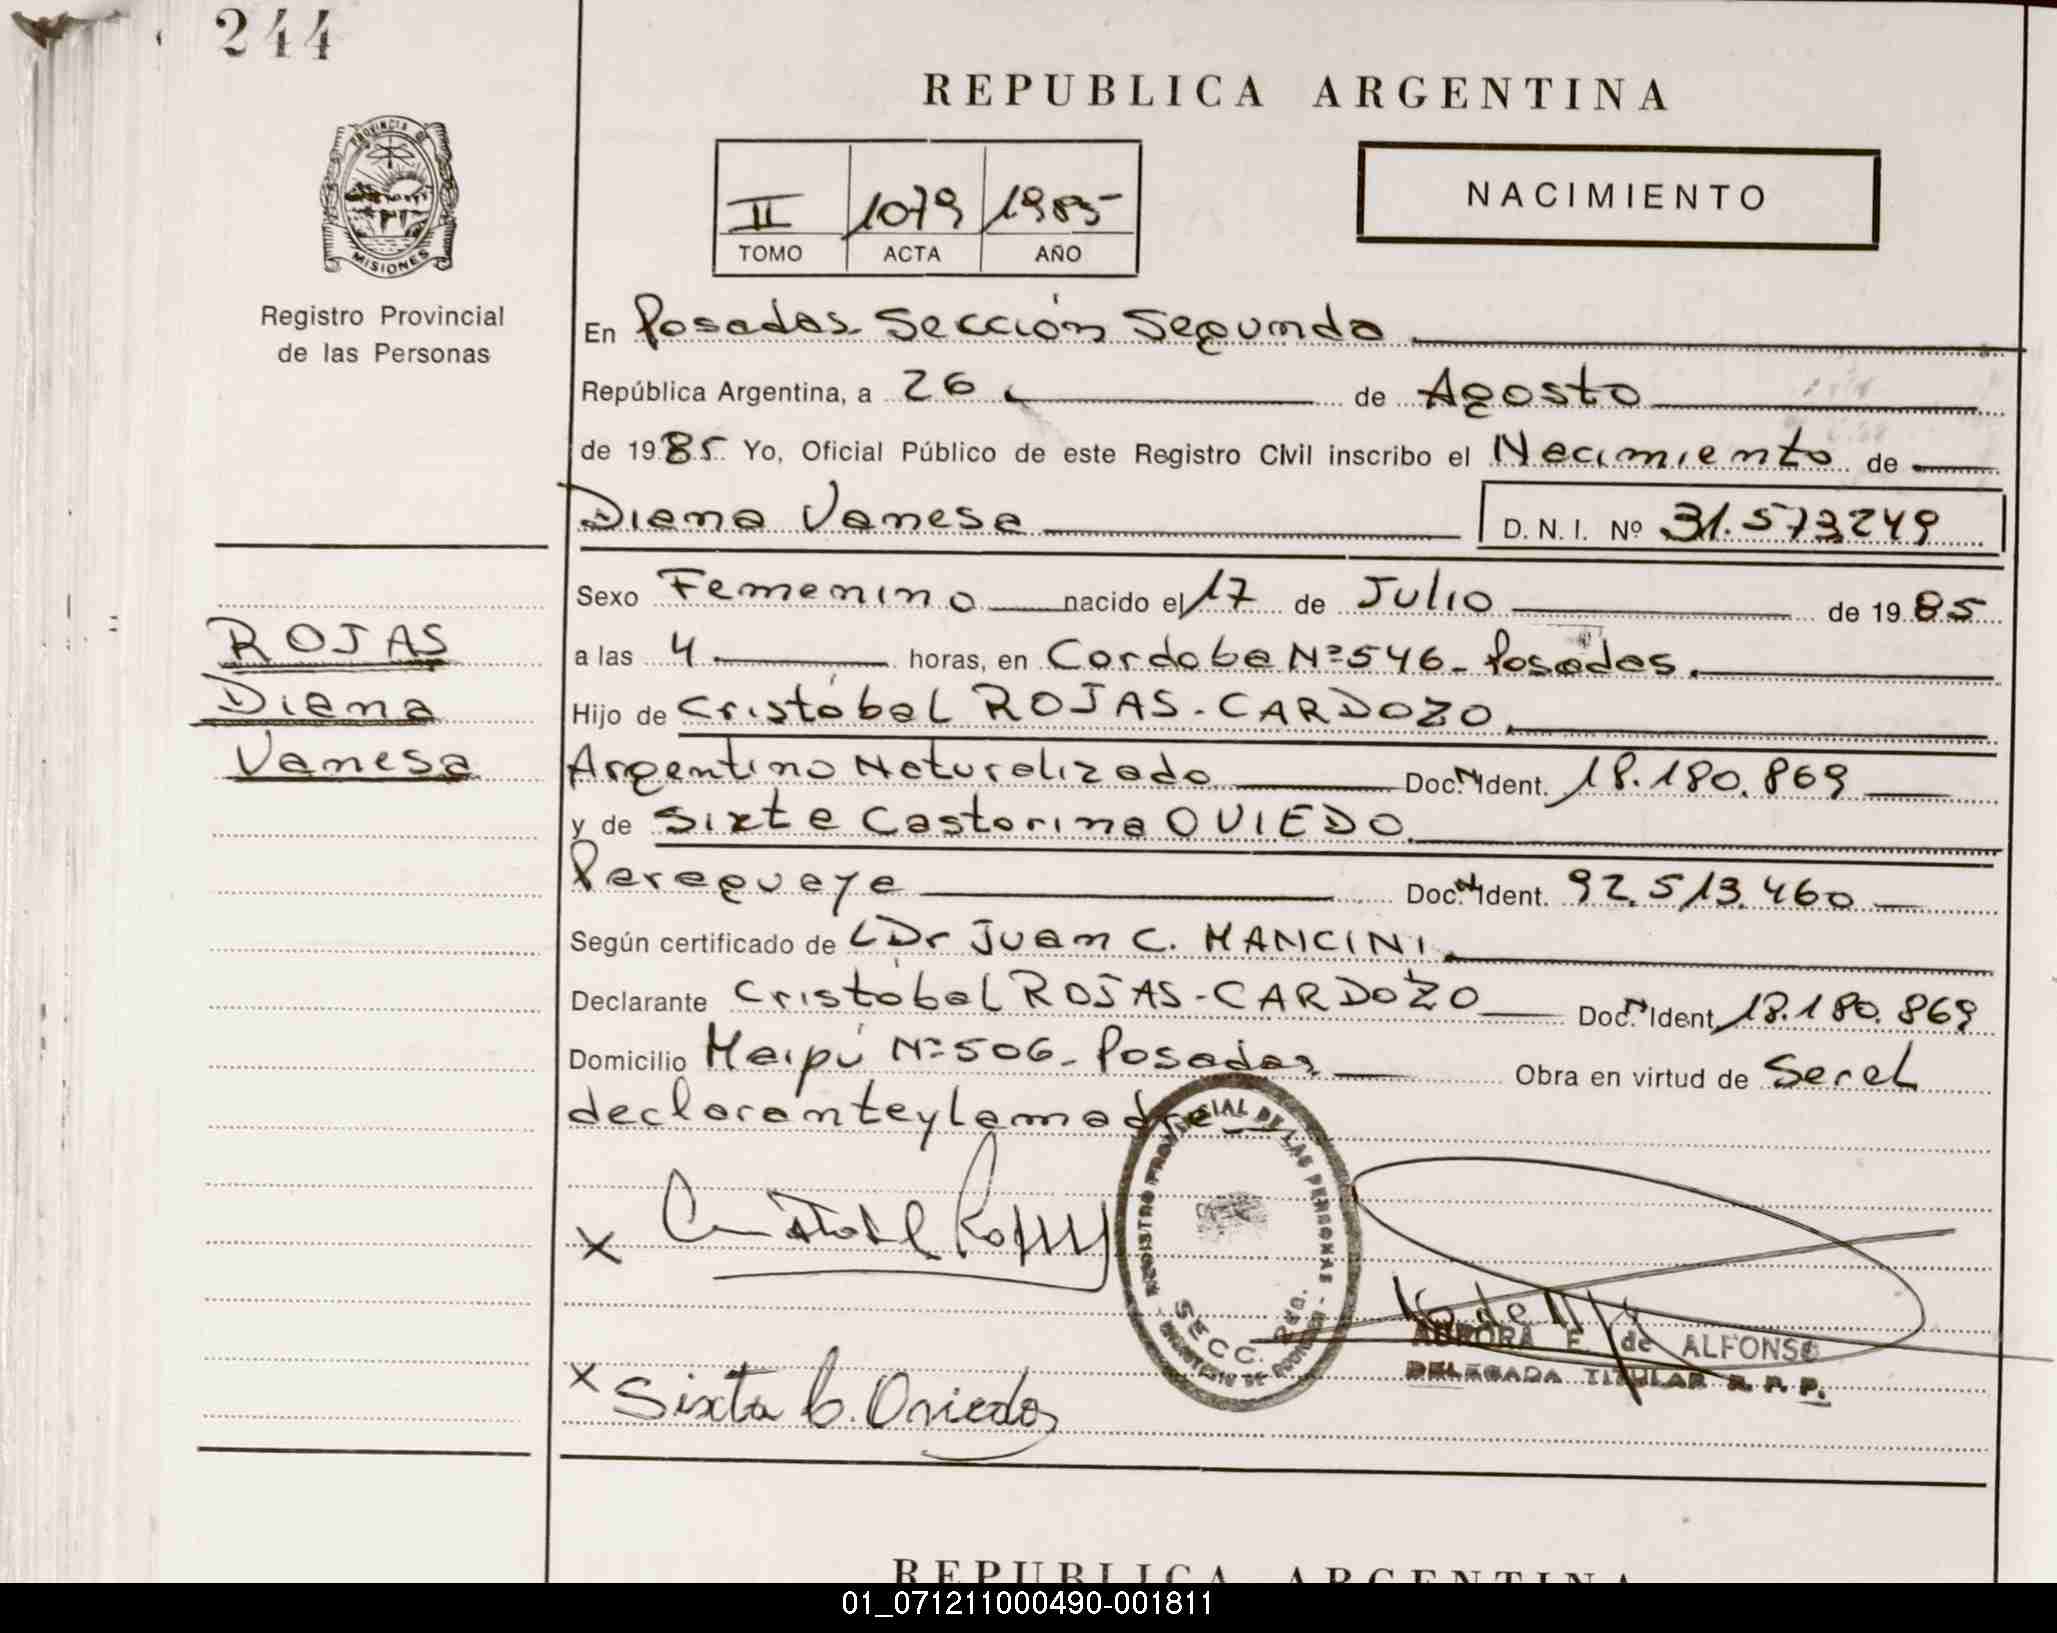 244
REPUBLICA ARGENTINA
PROVINCIA DE
MISIONES
Registro Provincial
de las Personas
II 1079 1985
TOMO ACTA AÑO
NACIMIENTO
En Posadas Sección Segunda
República Argentina, a 26 de Agosto
de 1985 Yo, Oficial Público de este Registro Civil inscribo el Nacimiento de
Diana Vanesa D. N. I. Nº 31.573.249
Sexo Femenino nacido el 17 de Julio de 1985
a las 4 horas, en Cordoba Nº 546 - Posadas.
Hijo de Cristóbal ROJAS - CARDOZO.
Argentino Naturalizado Doc. N Ident. 18.180.869
y de Sixta Castorina OVIEDO.
Paraguaya Doc. N Ident. 92.513.460
Según certificado de Dr Juan C. MANCINI.
Declarante Cristóbal ROJAS - CARDOZO Doc. N Ident. 18.180.869
Domicilio Maipú Nº 506 - Posadas Obra en virtud de Ser el
declarante y la madre
ROJAS
Diana
Vanesa
REGISTRO PROVINCIAL DE LAS PERSONAS
SECC. 2DA.
x Cristobal Rojas
AURORA F. de ALFONSO
DELEGADA TITULAR R. P. P.
x Sixta C. Oviedo
REPUBLICA ARGENTINA
01_071211000490-001811